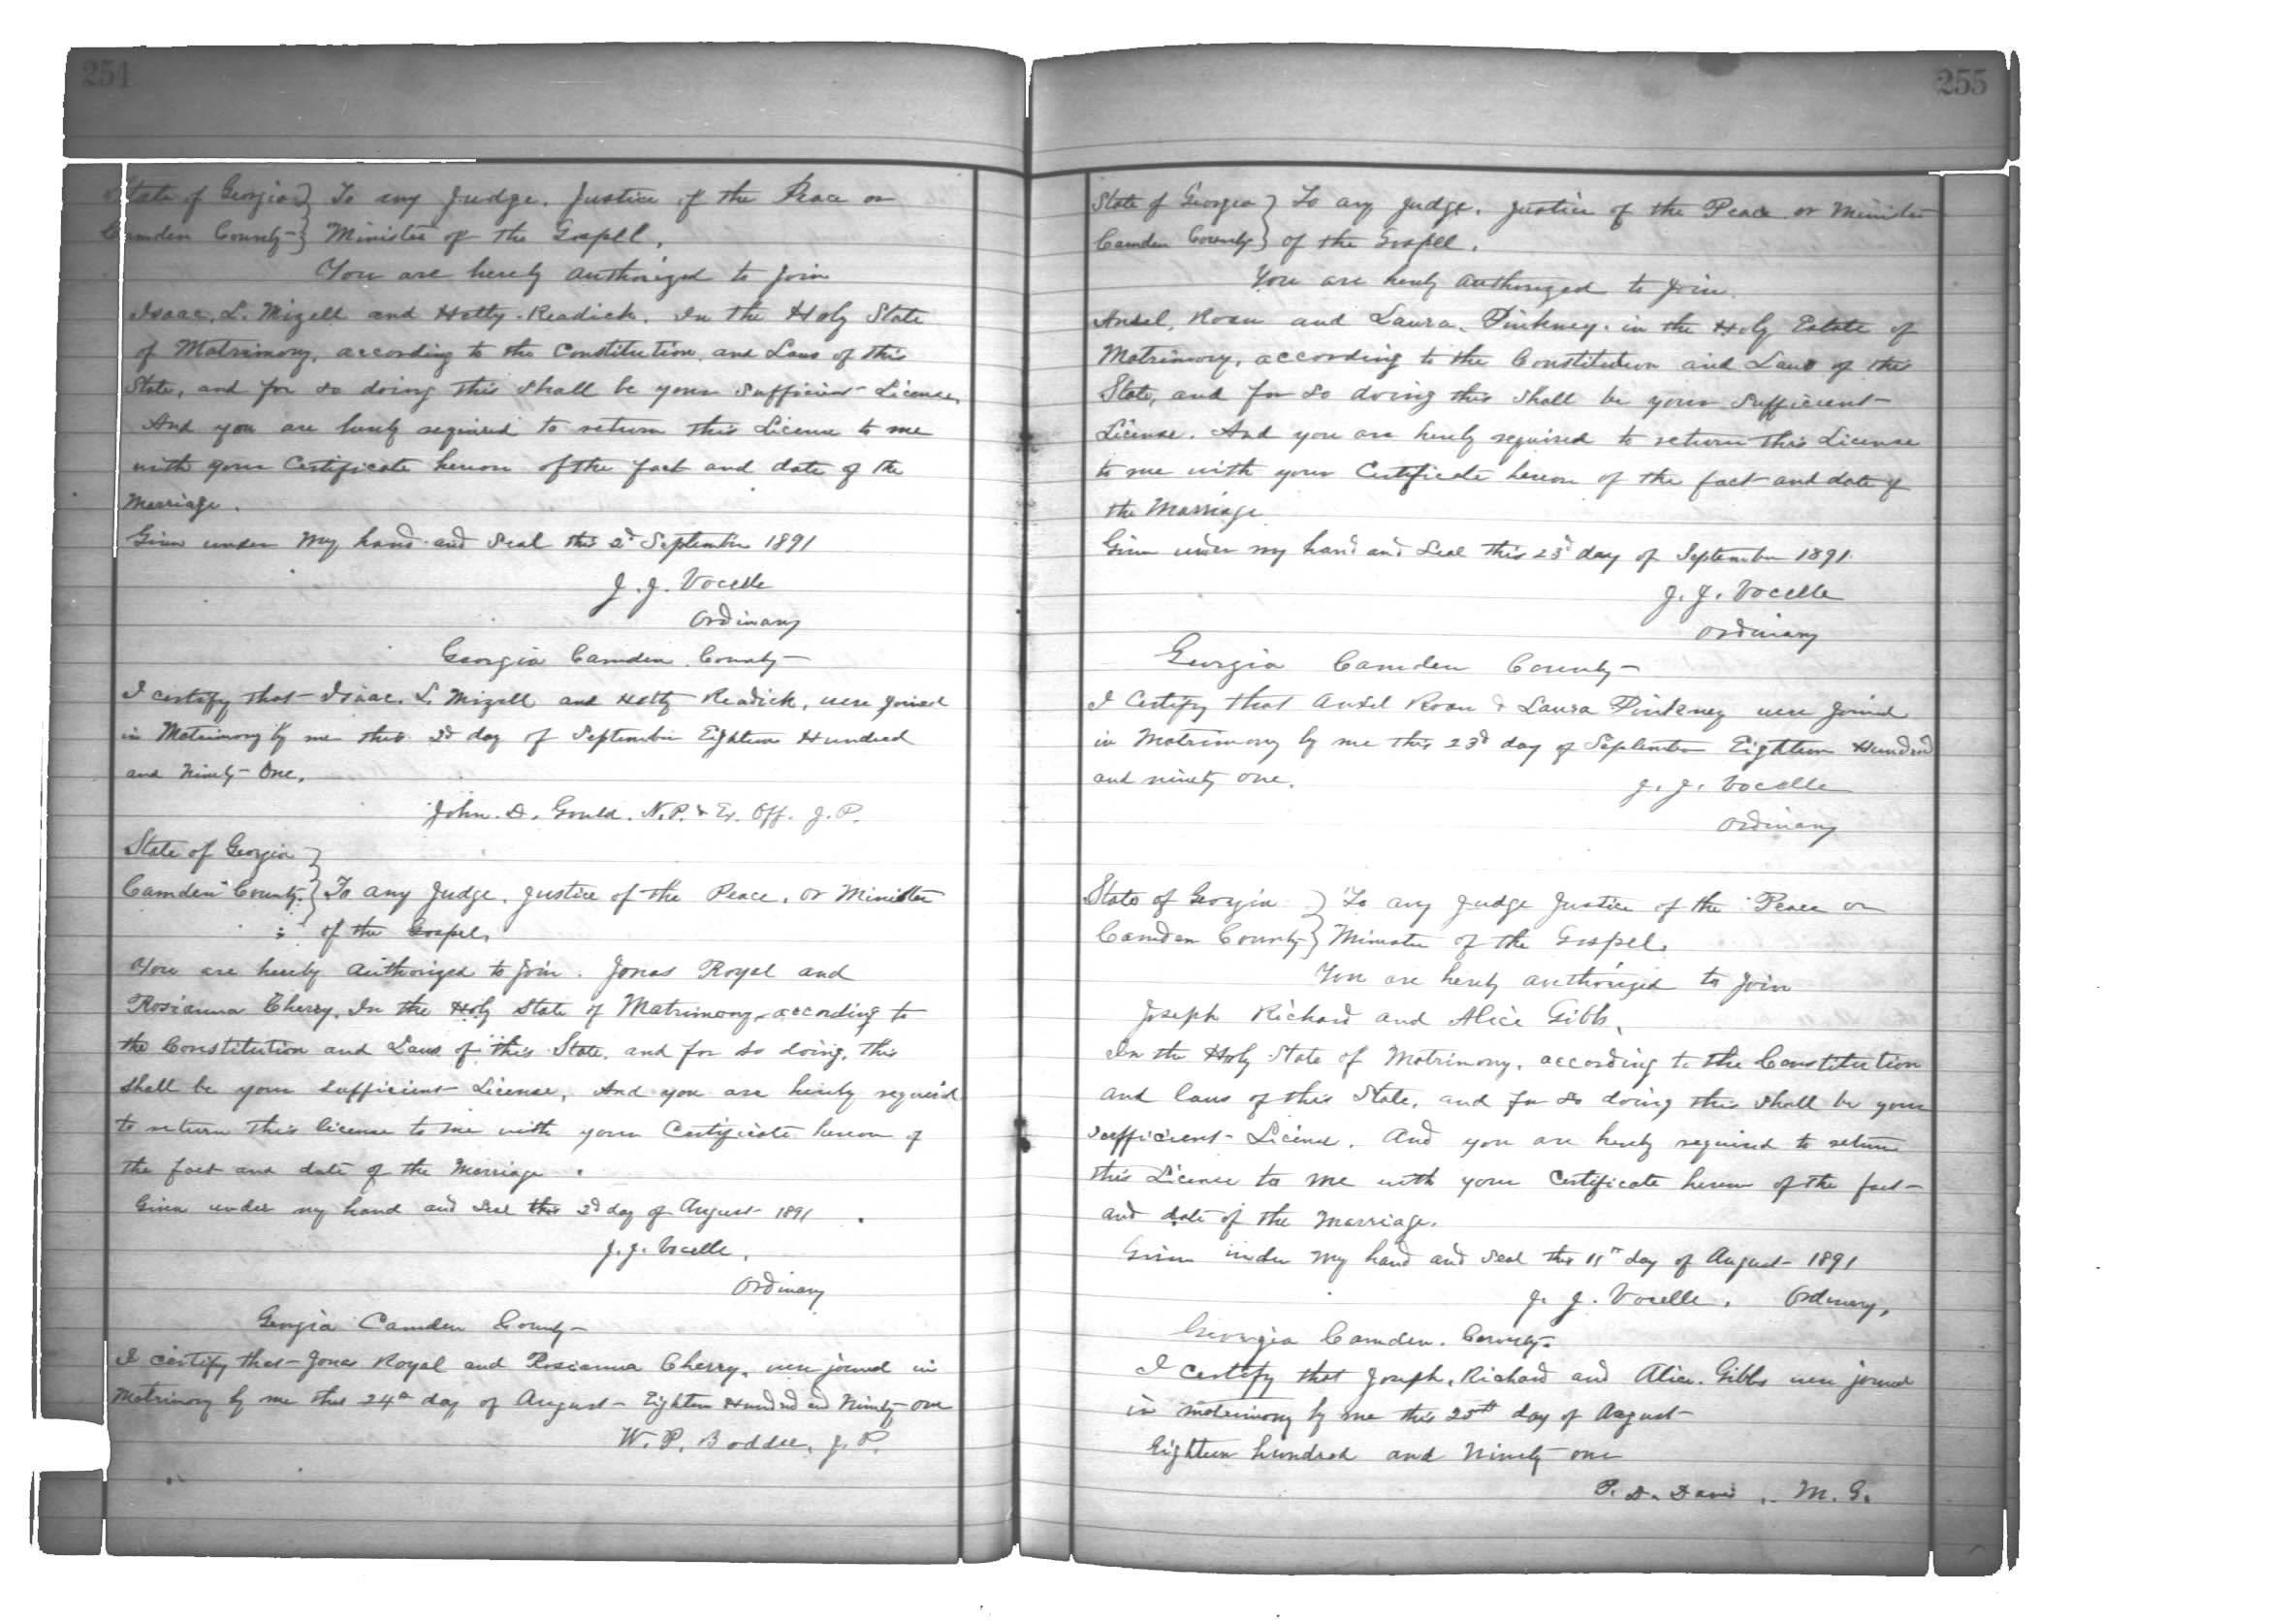 254
State of Georgia } To any Judge, Justice of the Peace or
Camden County } Minister of the Gospell,
You are hereby authorized to join
Isaac. L. Mizell and Hetty Readick. In the Holy State
of Matrimony, according to the Constitution and Laws of this
State, and for so doing this shall be your sufficient License,
And you are hereby required to return this License to me
with your Certificate hereon of the fact and date of the
Marriage.
Given under My hand and Seal this 2d September 1891
J. J. Vocelle
Ordinary
Georgia Camden County
I certify that Isaac. L. Mizell and Hetty Readick, were joined
in Matrimony by me this 2d day of September Eighteen Hundred
and Ninety-One.
John. D. Gould. N.P. & Ex. Off. J. P.
State of Georgia }
Camden County. } To any Judge, Justice of the Peace, or Minister
of the Gospel,
You are hereby authorized to join. Jonas Royal and
Rosianna Cherry, In the Holy State of Matrimony, according to
the Constitution and Laws of this State, and for so doing, this
shall be your sufficient License, And you are hereby required
to return this license to me with your Certificate hereon of
the fact and date of the Marriage.
Given under my hand and Seal this 2d day of August 1891.
J. J. Vocelle,
Ordinary
Georgia Camden County
I certify that Jonas Royal and Rosianna Cherry, were joined in
Matrimony by me this 24th day of August Eighteen Hundred and Ninety-one
W. P. Boddie, J. P.
255
State of Georgia } To any Judge, Justice of the Peace or Minister
Camden County } of the Gospell.
You are hereby authorized to join
Ansel, Roan and Laura, Pinkney. in the Holy Estate of
Matrimony, according to the Constitution and Laws of this
State, and for so doing this shall be your sufficient
License. And you are hereby required to return this License
to me with your Certificate hereon of the fact and date of
the Marriage
Given under my hand and Seal this 23d day of September 1891.
J. J. Vocelle
Ordinary
Georgia Camden County
I Certify that Ansel Roan & Laura Pinkney were joined
in Matrimony by me this 23d day of September Eighteen Hundred
and ninety one.
J. J. Vocelle
Ordinary
State of Georgia } To any Judge Justice of the Peace or
Camden County } Minister of the Gospel.
You are hereby authorized to join
Joseph Richard and Alice Gibbs,
In the Holy State of Matrimony, according to the Constitution
and laws of this State, and for so doing this shall be your
sufficient License. And you are hereby required to return
this License to me with your Certificate hereon of the fact
and date of the Marriage.
Given under my hand and Seal this 11th day of August 1891
J. J. Vocelle, Ordinary,
Georgia Camden. County
I certify that Joseph, Richard and Alice. Gibbs were joined
in matrimony by me this 25th day of August
Eighteen hundred and Ninety one
P. D. Davis, M. G.